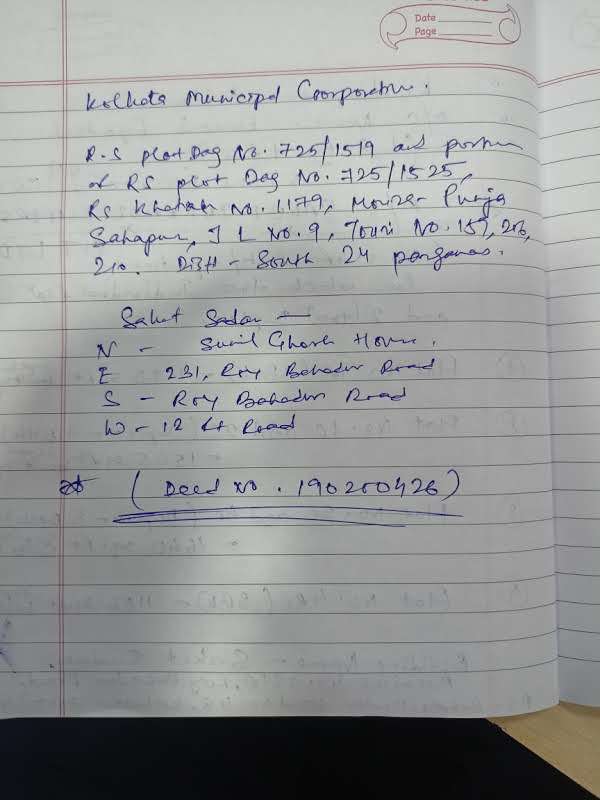 Date
Page
Kolkata Municipal Coorporation.
R.S plot Dag No. 725/1519 and portion
of RS plot Dag No. 725/1525,
RS Khatian No. 1179, Mouza- Punja
Sahapur, J L No. 9, Touzi No. 159, 206,
210. Distt - South 24 parganas.
Saket Sadan —
N - Sunil Ghosh House.
E 231, Roy Bahadur Road
S - Roy Bahadur Road
W - 12 ft Road
(Deed No. 190200426)